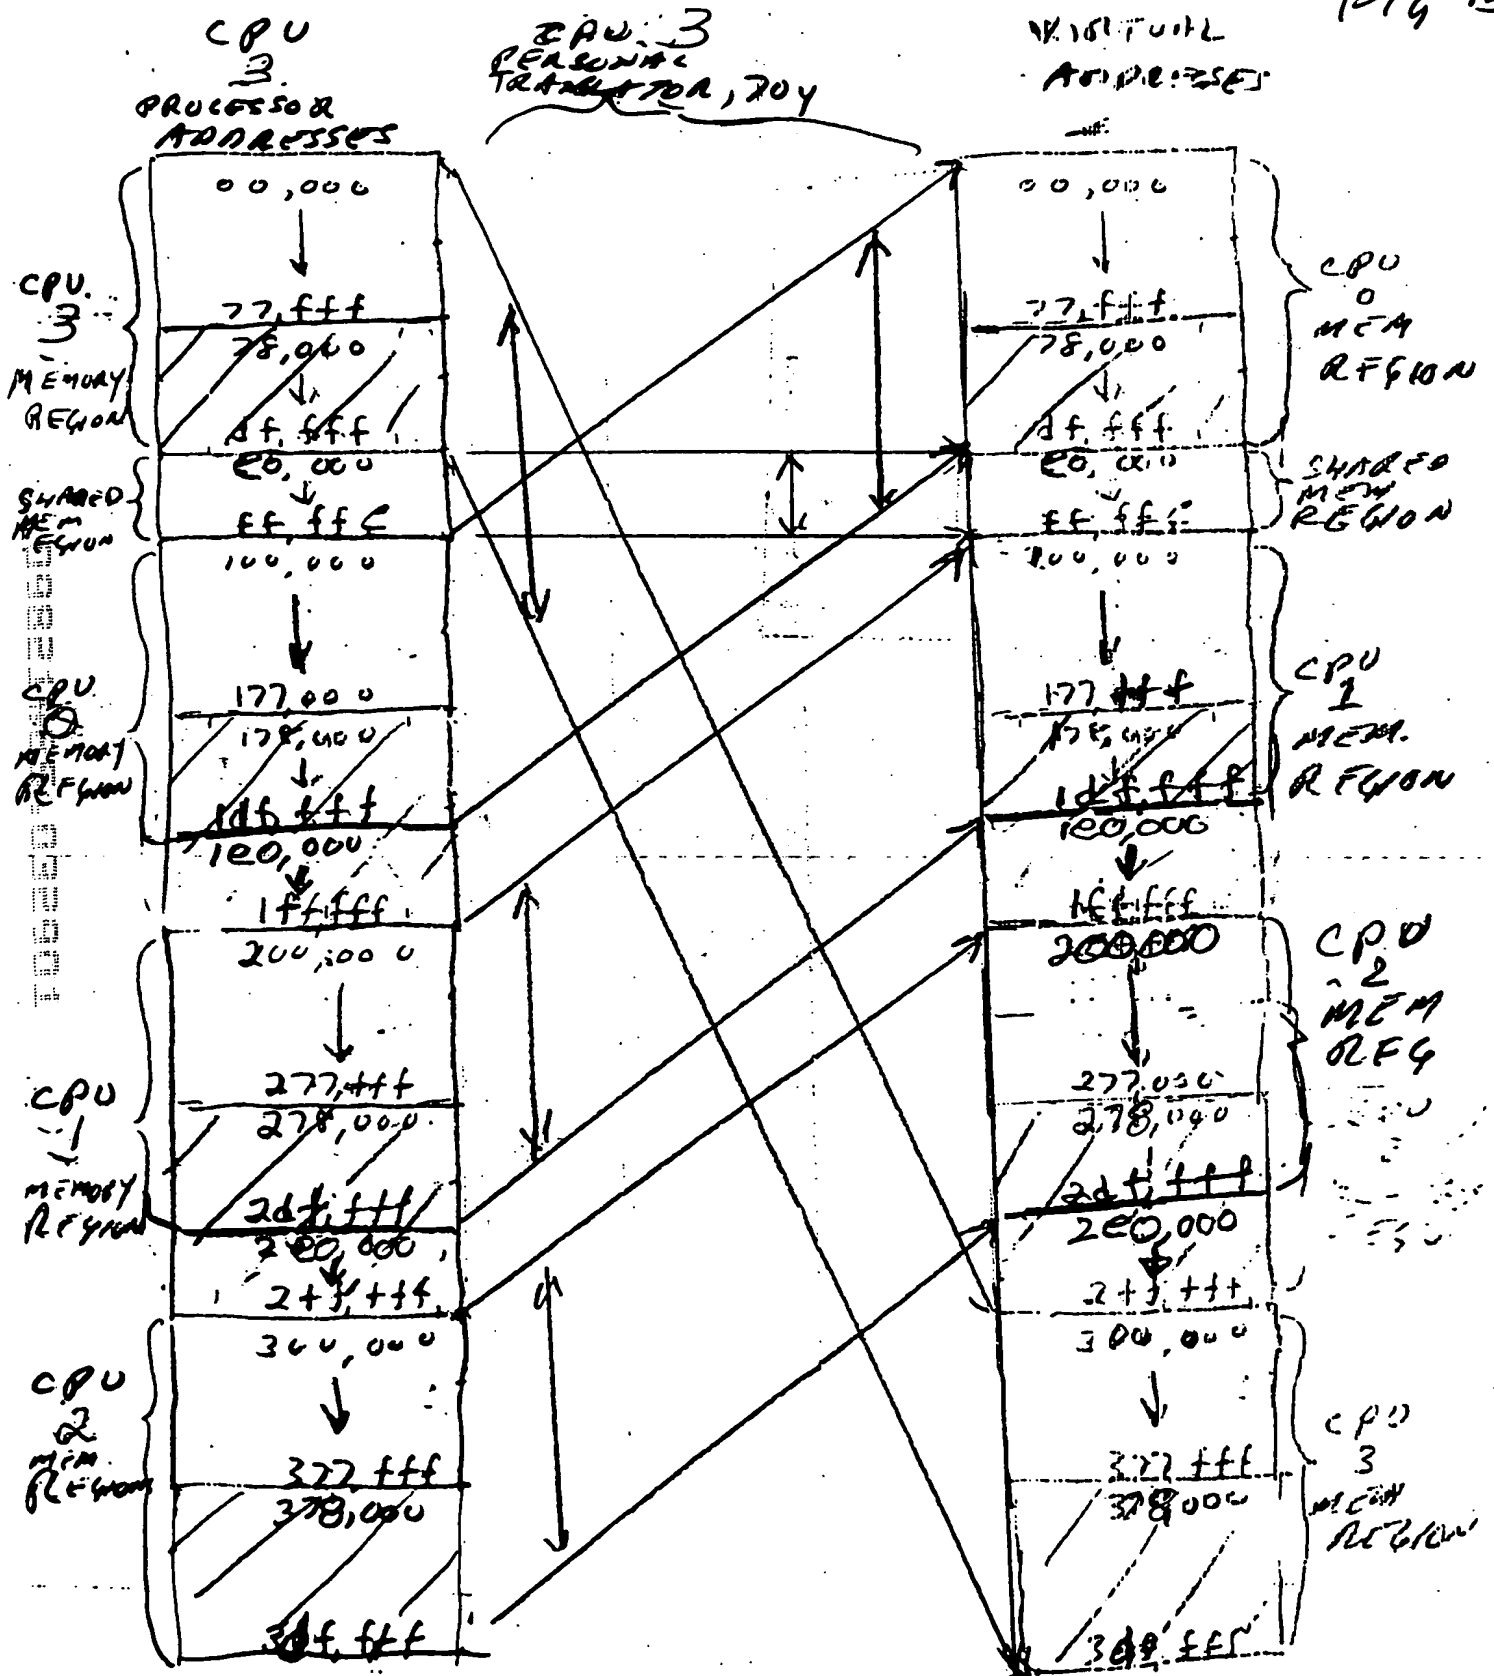 CPU
3
PROCESSOR
ADDRESSES
CPU 3
PERSONAL
TRANSLATOR, 704
VIRTUAL
ADDRESSES
00,000
77,fff
78,000
df,fff
e0,000
ff,fff
100,000
177,000
178,000
1df,fff
1e0,000
1ff,fff
200,000
277,fff
278,000
2df,fff
2e0,000
2ff,fff
300,000
377,fff
378,000
3df,fff
CPU
3
MEMORY
REGION
SHARED
MEM
REGION
CPU
0
MEMORY
REGION
CPU
1
MEMORY
REGION
CPU
2
MEM
REGION
00,000
77,fff
78,000
df,fff
e0,000
ff,fff
100,000
177,fff
178,000
1df,fff
1e0,000
1ff,fff
200,000
277,000
278,000
2df,fff
2e0,000
2ff,fff
300,000
377,fff
378,000
3df,fff
CPU
0
MEM
REGION
SHARED
MEM
REGION
CPU
1
MEM.
REGION
CPU
2
MEM
REG
CPU
3
MEM
REGION